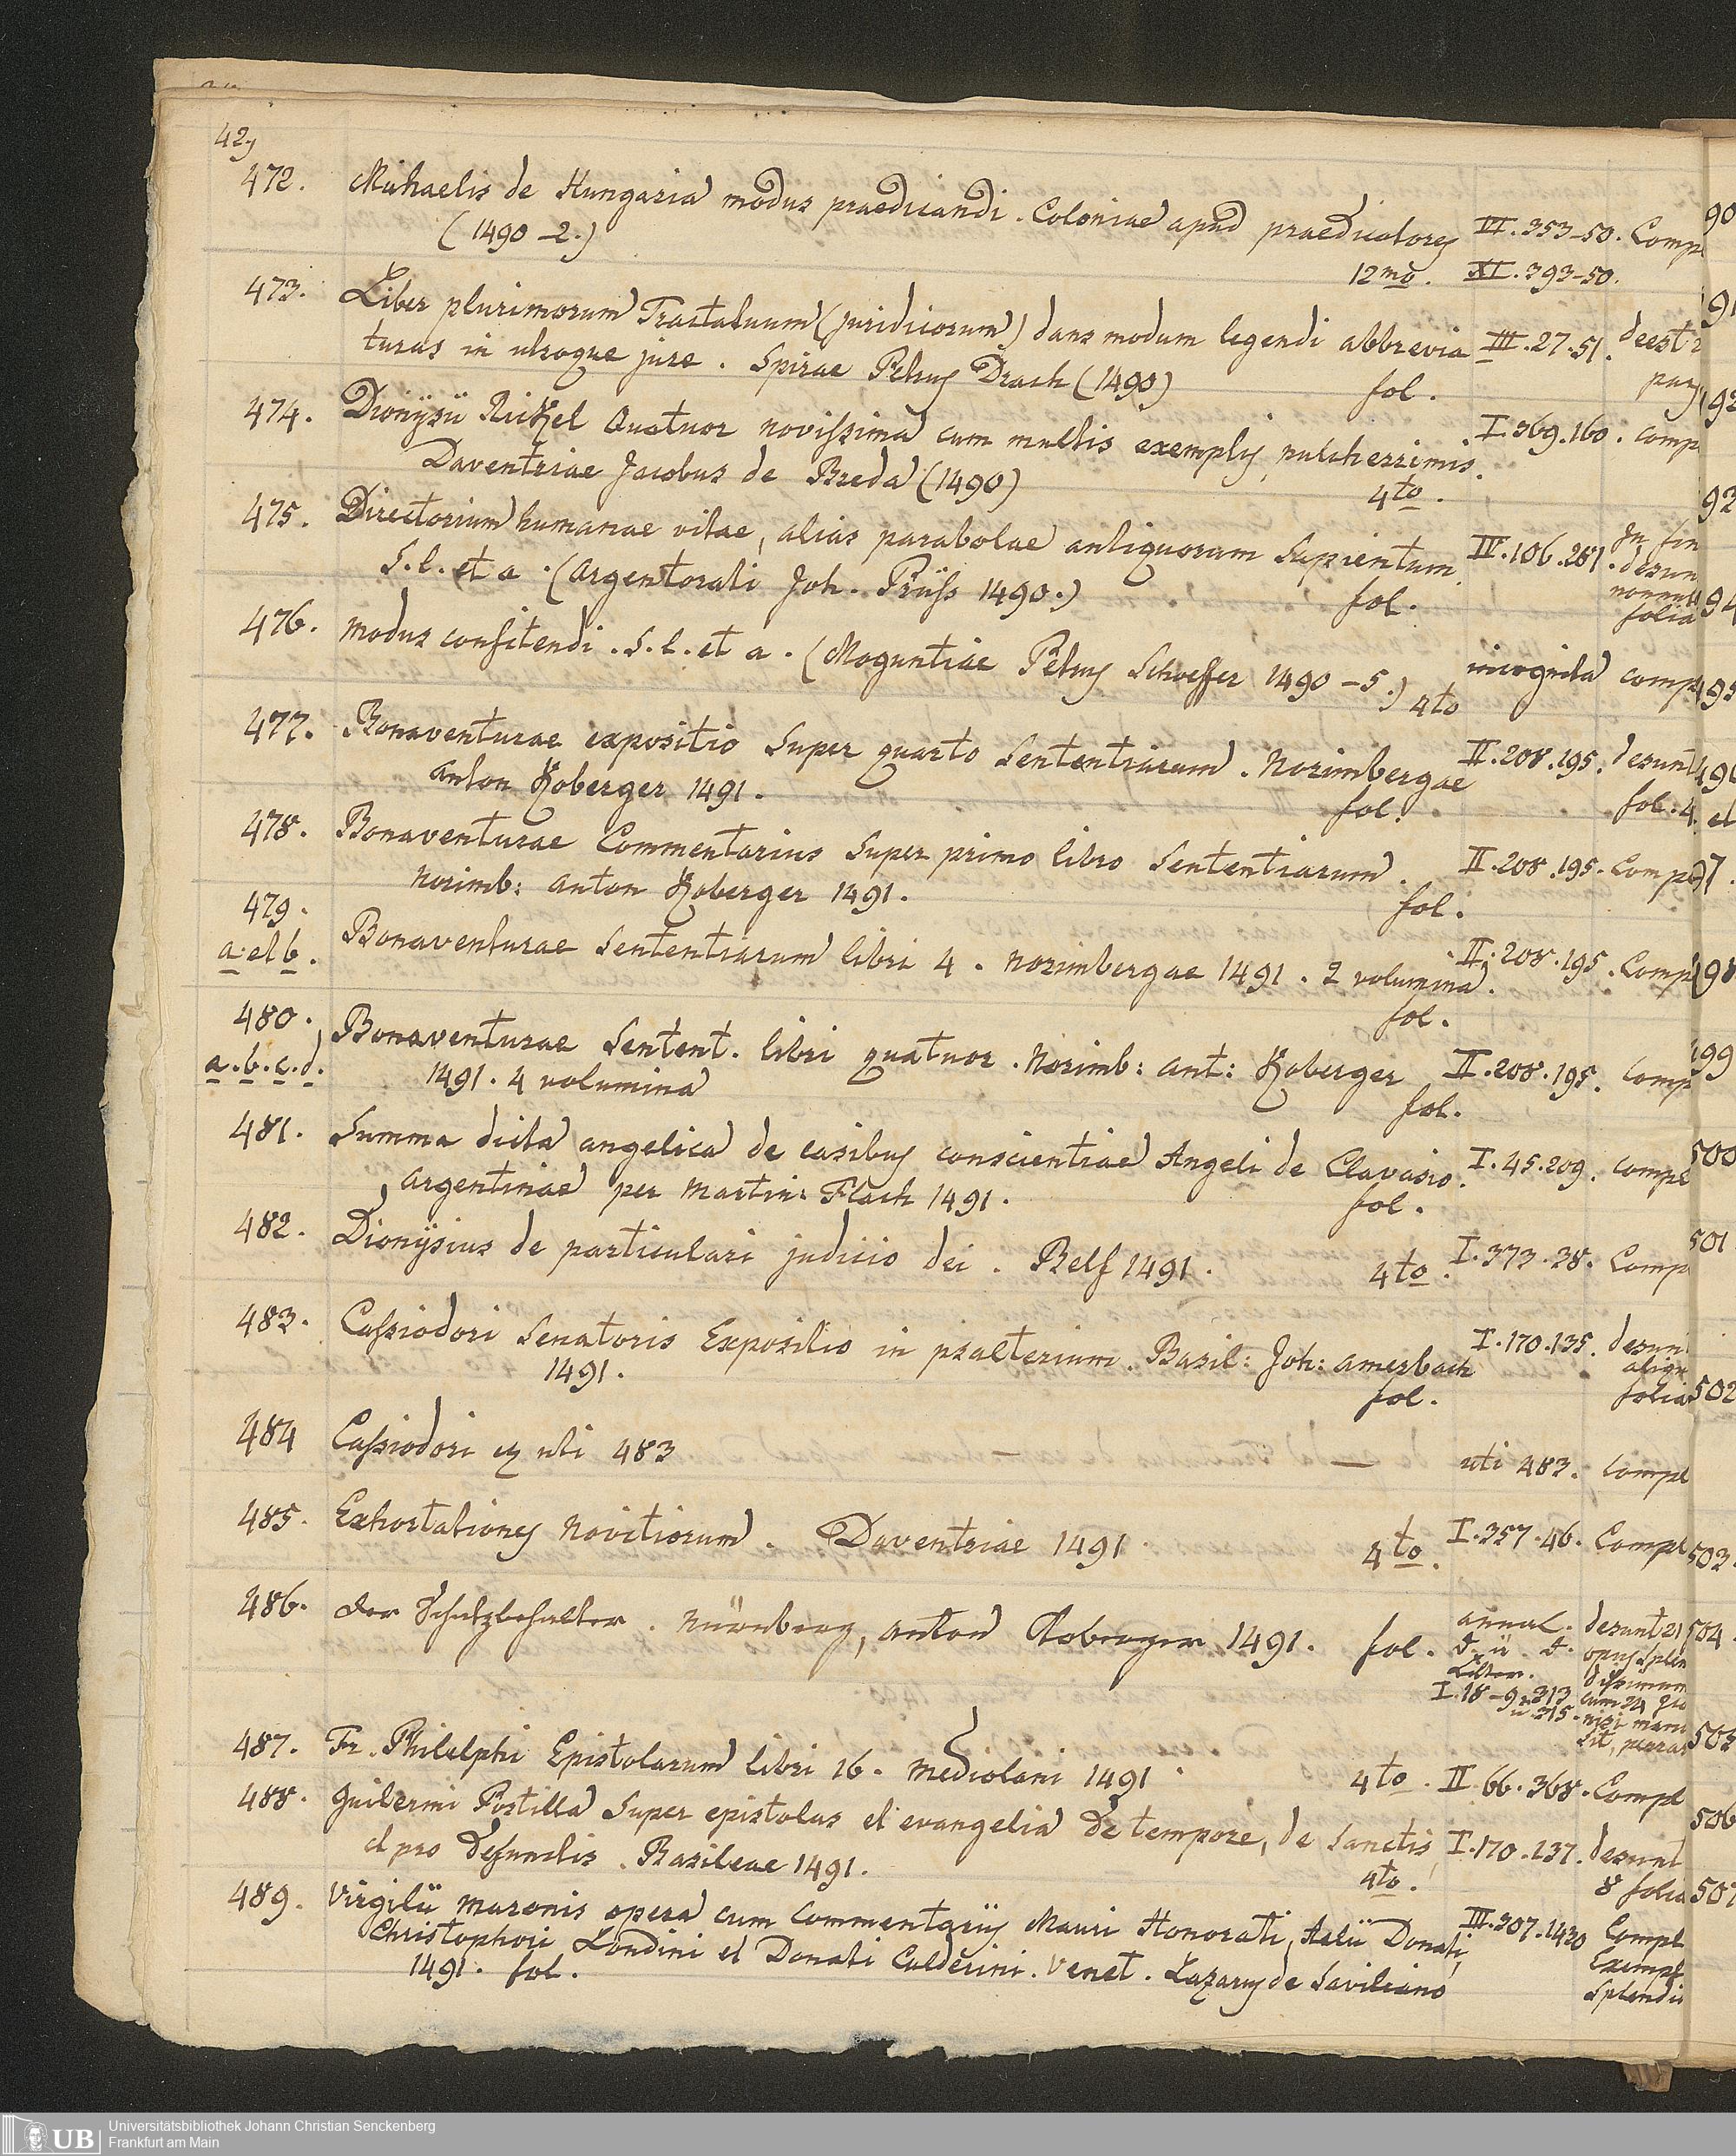 42,
472. Michaelis de Hungaria modus praedicandi. Coloniae apud praedicatores VI. 353-50. Comp
(1490-2.) 12mo. XI. 393-50.
473. Liber plurimorum Tractatuum (juridicorum) dans modum legendi abbrevia III. 27. 51. deest
turas in utroque jure. Spirae Petrus Drach (1490) fol. pag
474. Dionysii Rickel Quatuor novissima cum multis exemplis pulcherrimis. I. 369. 160. comp
Daventriae Jacobus de Breda (1490) 4to.
475. Directorium humanae vitae, alias parabolae antiquorum Sapientum. IV. 106. 281. In fin
S. l. et a. (Argentorati Joh. Prüss 1490.) fol. desun
nonnull
folia
476. Modus confitendi. S. l. et a. (Moguntiae Petrus Schoeffer 1490-5.) 4to incognita comp
477. Bonaventurae expositio Super quarto Sententiarum. Norimbergae II. 208. 195. desunt
Anton Koberger 1491. fol. fol: 4.
478. Bonaventurae Commentarius Super primo libro Sententiarum. II. 208. 195. Comp
Norimb: Anton Koberger 1491. fol.
479. a et b. Bonaventurae Sententiarum libri 4. Norimbergae 1491. 2 volumina. II. 208. 195. Compl
fol.
480. a. b. c. d. Bonaventurae Sentent. libri quatuor. Norimb: Ant: Koberger II. 208. 195. Comp
1491. 4 volumina fol.
481. Summa dicta angelica de casibus conscientiae Angeli de Clavasio. I. 45. 209. compl
Argentinae per Martin: Flach 1491. fol.
482. Dionysius de particulari judicio dei. Relf 1491. 4to. I. 373. 38. Comp
483. Cassiodori Senatoris Expositio in psalterium. Basil: Joh: Amerbach I. 170. 135. desun
1491. fol. aliqu
folia
484 Cassiodori etz uti 483 — — uti 483. Compl
485. Exhortationes Novitiorum. Daventriae 1491 4to. I. 357. 46. Compl
486. Der Schatzbehalter. Nürnberg, Anton Koberger 1491. fol. Annal. desunt 21
d. ä. d. opus splen
Litter. dissimum
I. 18-9. 313 cum
u 315. nisi man
sit, perra
487. Fr. Philelphi Epistolarum libri 16. Mediolani 1491. 4to. II 66. 368. Compl
488. Guilermi Postilla Super epistolas et evangelia De tempore, de Sanctis I. 170. 137. desunt
et pro Defunctis. Basileae 1491. 4to. 8 folia
489. Virgilii Maronis opera cum Commentariis Mauri Honorati, Aelii Donati, III. 307. 1430 Compl
Christophori Londini et Donati Calderini. Venet. Lazarus de Saviliano Exempl
1491. fol. Splendi
90
91
92
93
94
495
496
et
97.
498
499
500
501
502
503.
504.
505
506
507
UB Universitätsbibliothek Johann Christian Senckenberg
Frankfurt am Main